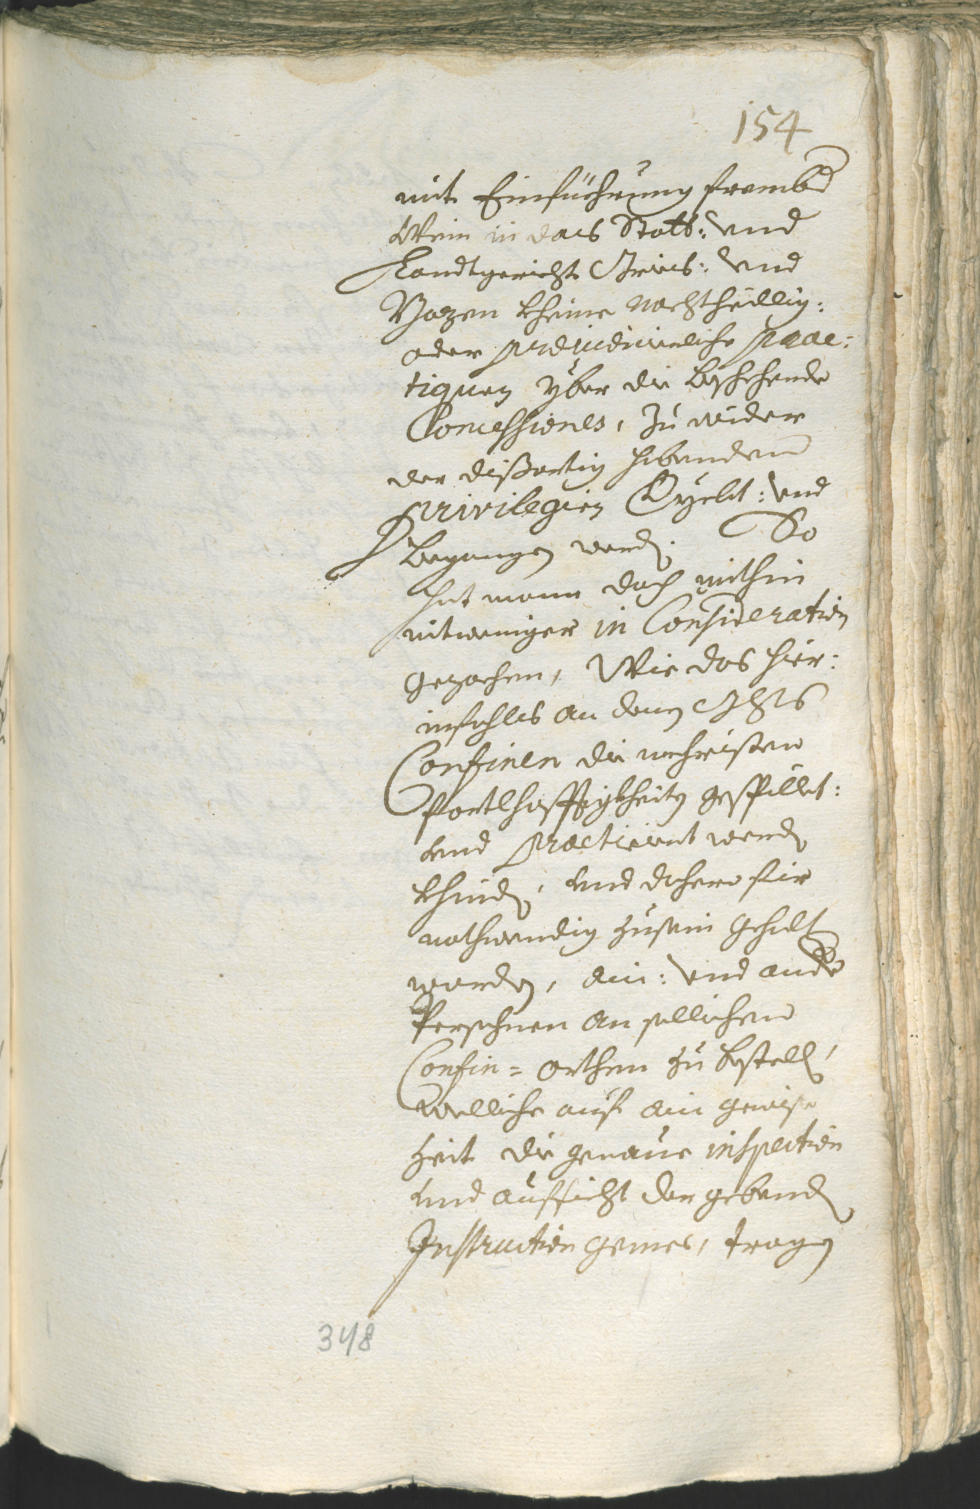 154
mit Einfüehrung frembd
Wein in das Statt: und
Landtgericht Gries: und
Bozen kheine nachtheillig:
oder præiudicierliche prac:
tiquen yber die beschehende
Concessiones, zu wider
der dißorttig habenden
Privilegien Geyebt: und
begangen werden. So
hat mann doch mithin
nitweniger in Consideration
gezochen, Wie das hier:
infahls an denen
Confinen die mehristen
Vortlhafftigkheiten gespillet:
und practiciert werden
khinden, und dahero für
nothwendig zusein gehalten
worden, ain: und andere
Persohnen an sollichen
Confin= orthen zu bestellen,
welliche auf ain gewise
Zeit die genaue inspection
und aufsicht der gebenden
Instruction gemes, tragen
348